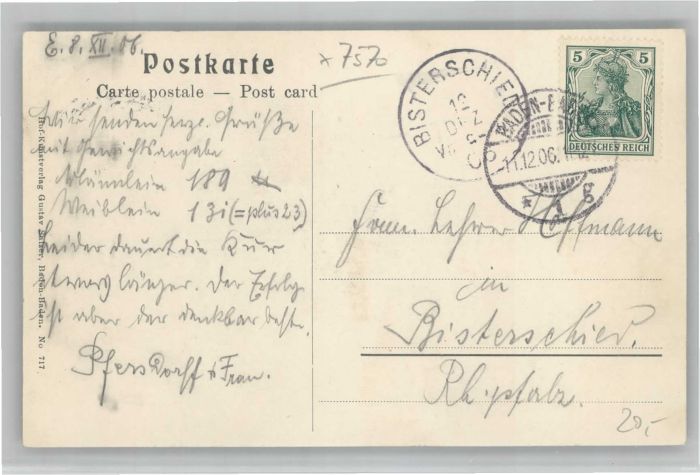 E. 8. XII. 06.
* 7570
Postkarte
Carte postale — Post card
Wir senden herzl. Grüße
mit Gewichtsangabe
Männlein 189 ℔
Weiblein 131 (= plus 23)
Leider dauert die Kur
etwas länger. Der Erfolg
ist aber der denkbar beste.
Pfersdorff & Frau.
Hof-Kunstverlag Gustav Salzer, Baden-Baden. No 717.
BISTERSCHIED
12
DEZ
BADEN-BADEN
11.12.06.
* 1 g
5 5
DEUTSCHES REICH
Herrn Lehrer Hoffmann
in
Bisterschied.
Rh. pfalz.
20,-